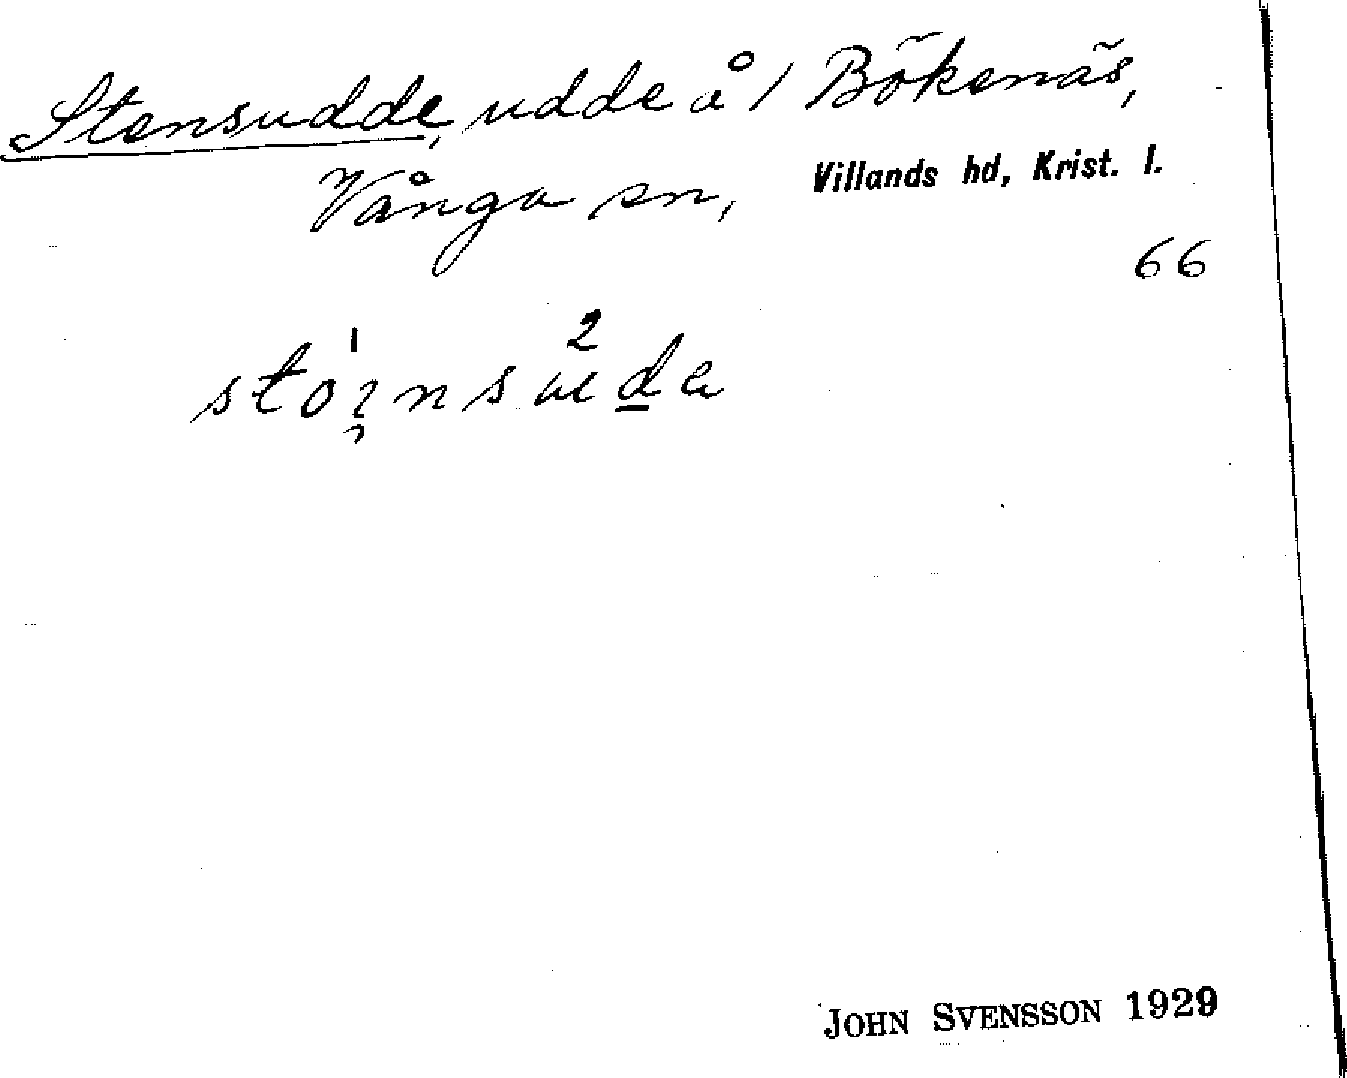 Stensudde, udde å 1 Bökenäs,
Vånga sn, Villands hd, Krist. l.
66
JOHN SVENSSON 1929